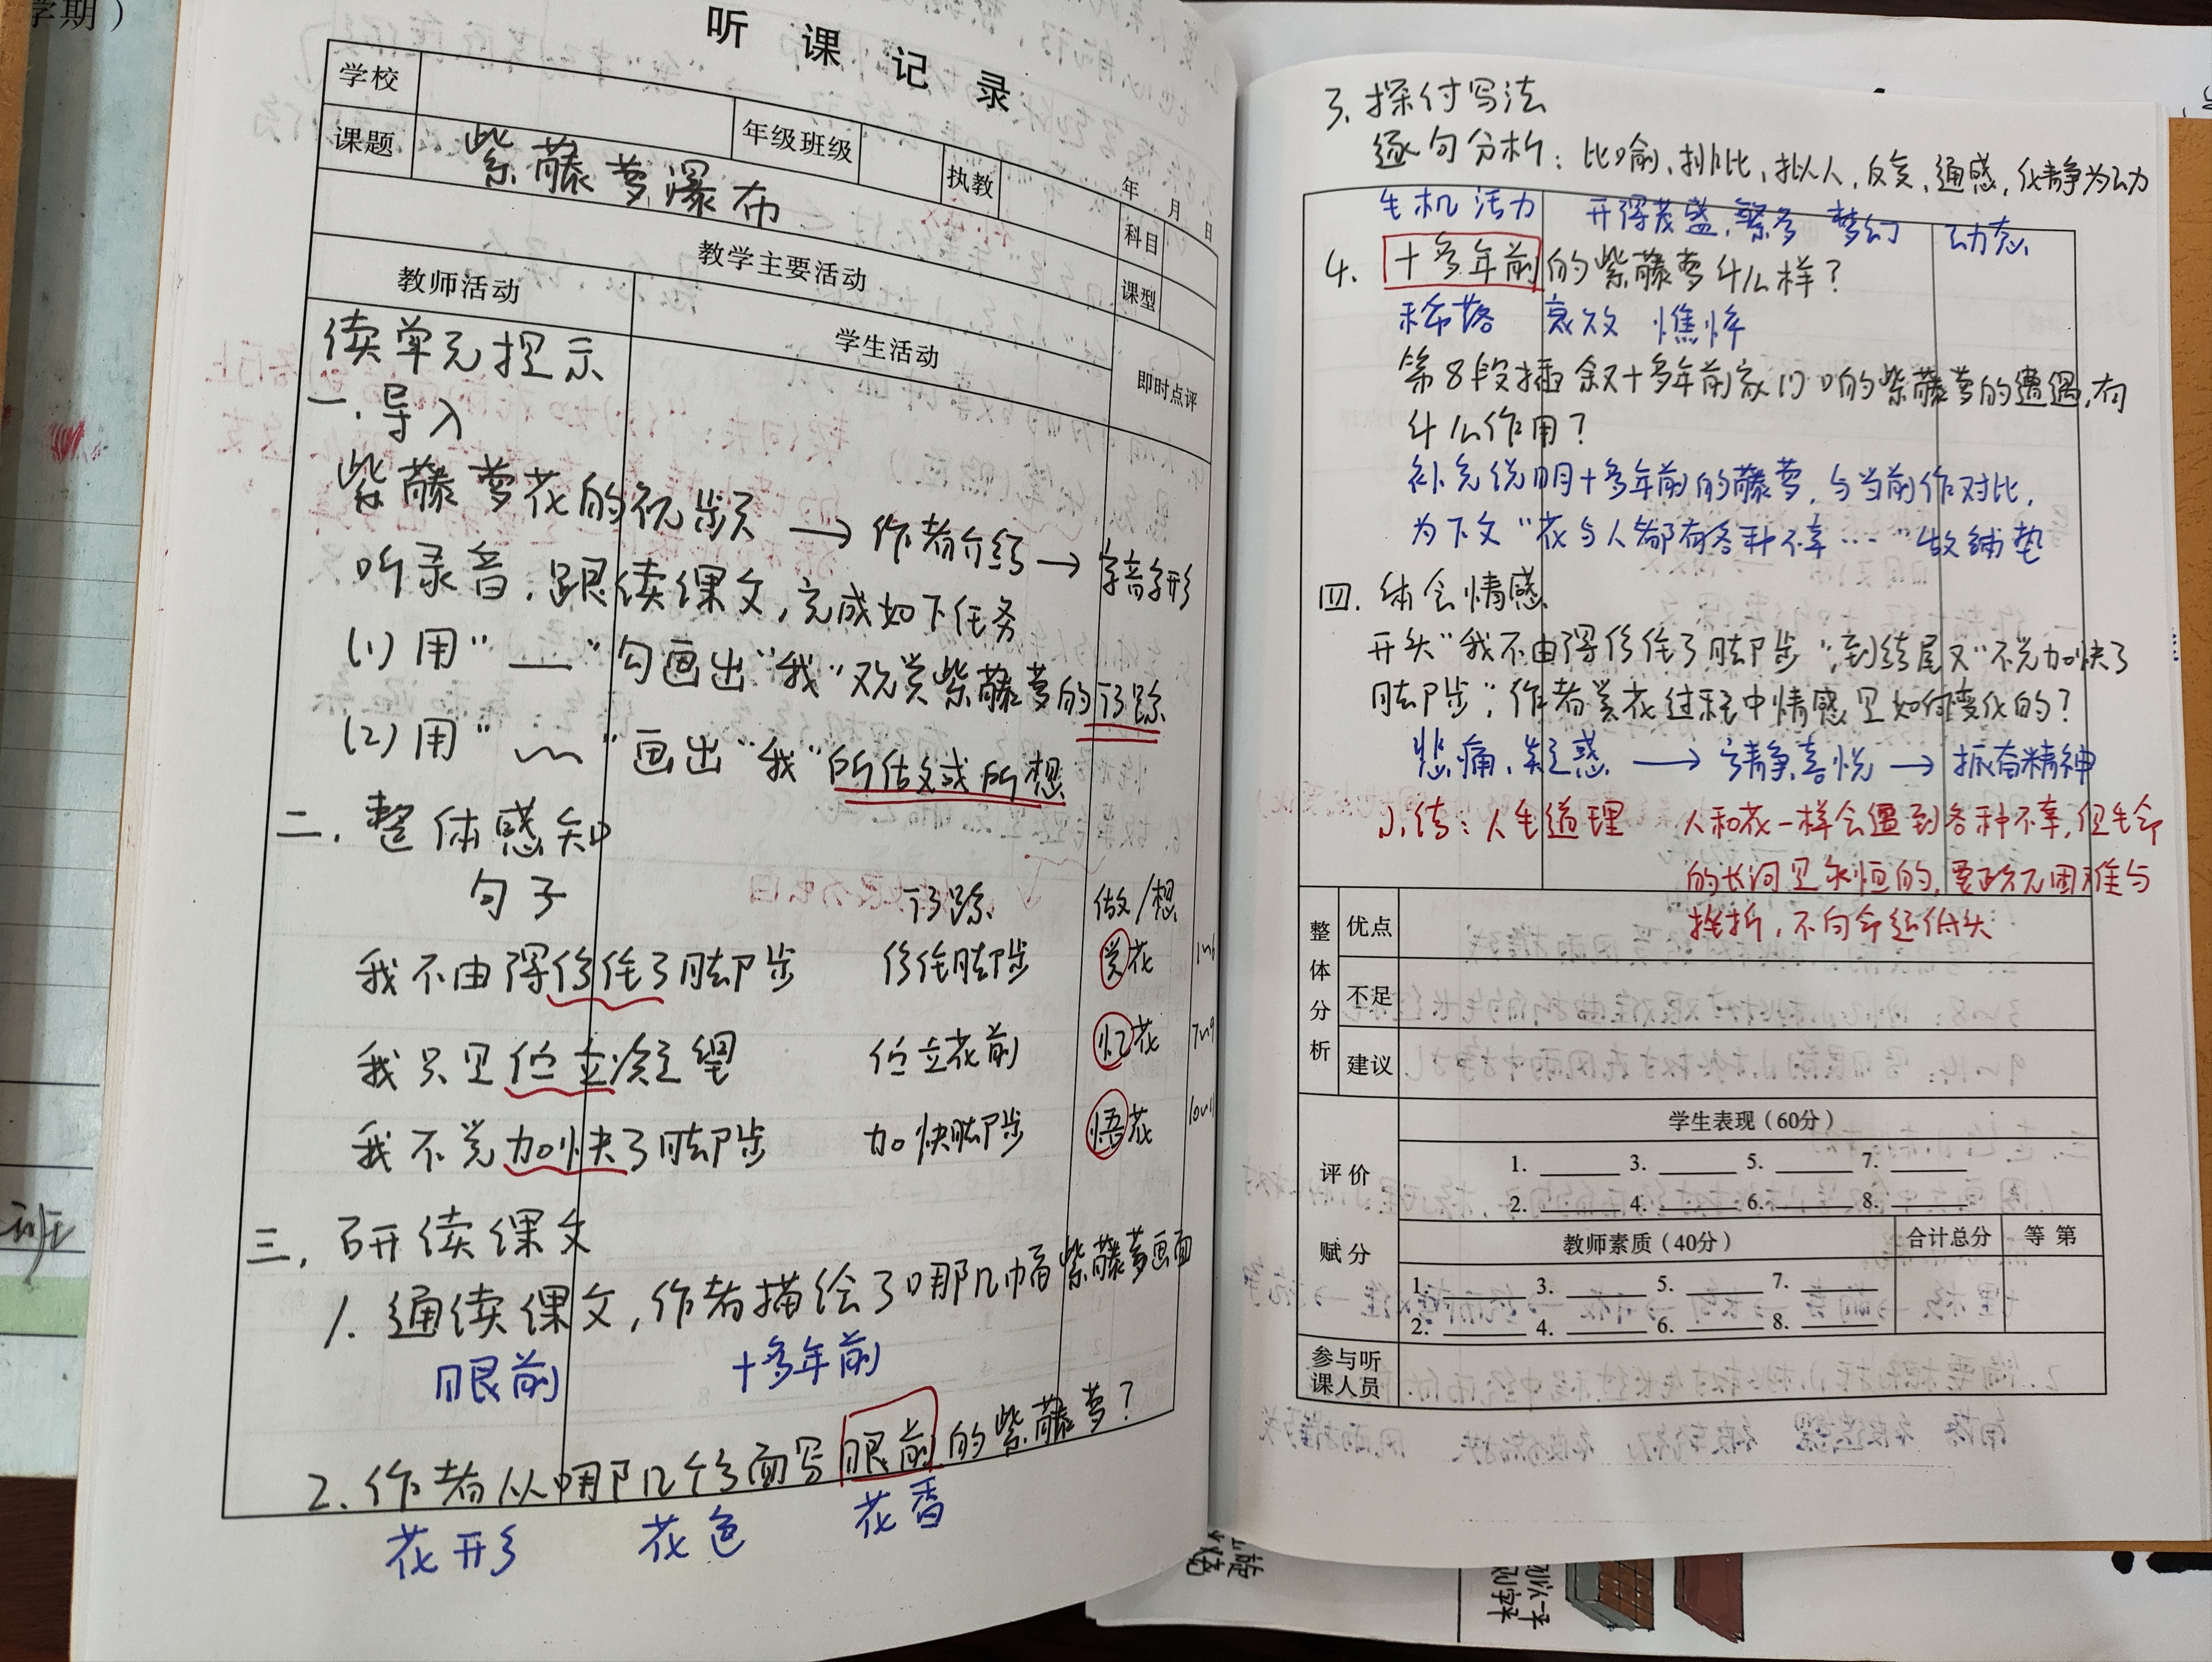 学期）
听课记录
学校
年级班级
执教
年 月 日
课题 紫藤萝瀑布
科目
教学主要活动
课型
教师活动
学生活动
即时点评
读单元提示
一.导入
紫藤萝花的视频 → 作者介绍 → 字音字形
听录音,跟读课文,完成如下任务
(1) 用“__”勾画出“我”观赏紫藤萝的行踪
(2) 用“﹏”画出“我”所做或所想
二.整体感知
句子 行踪 做/想
我不由得停住了脚步 停住脚步 赏花
我只是伫立凝望 伫立花前 忆花
我不觉加快了脚步 加快脚步 悟花
三.研读课文
1. 通读课文,作者描绘了哪几幅紫藤萝画面
眼前 十多年前
2. 作者从哪几个方面写眼前的紫藤萝?
花形 花色 花香
3. 探讨写法
逐句分析:比喻、排比、拟人、反复、通感,化静为动
生机 活力 开得茂盛、繁多 梦幻 动态
4. 十多年前的紫藤萝什么样?
稀落 衰败 憔悴
第8段插叙十多年前家门口的紫藤萝的遭遇,有
什么作用?
补充说明十多年前的藤萝,与当前作对比,
为下文“花与人都有各种不幸……”做铺垫
四.体会情感
开头“我不由得停住了脚步”,到结尾又“不觉加快了
脚步”,作者赏花过程中情感是如何变化的?
悲痛、疑惑 → 宁静喜悦 → 振奋精神
小结:人生道理 人和花一样会遇到各种不幸,但生命
的长河是永恒的,要政克困难与
挫折,不向命运低头
整体分析
优点
不足
建议
评价
学生表现（60分）
1. 3. 5. 7.
2. 4. 6. 8.
赋分
教师素质（40分）
合计总分
等第
1. 3. 5. 7.
2. 4. 6. 8.
参与听
课人员